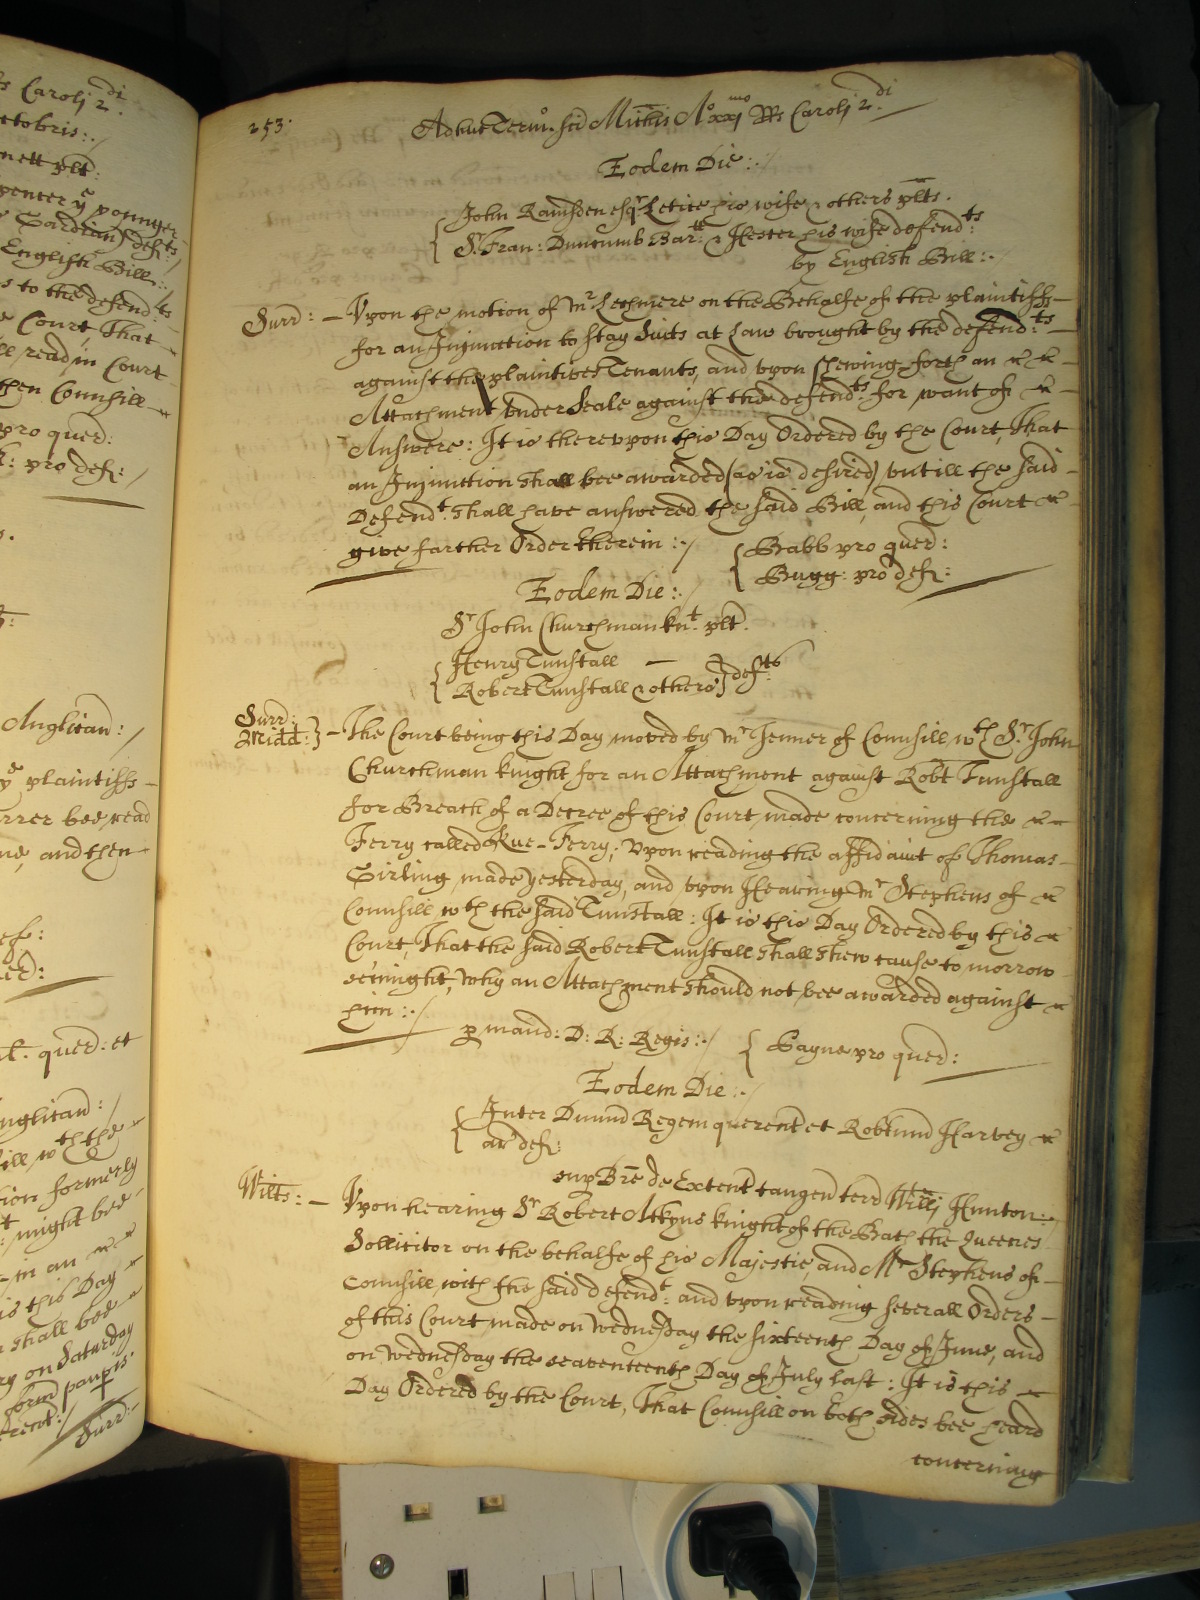 s Caroli 2.di
ctobris:
nett plt:
penter ye younger
Gardian defts
English Bill:
s to the defend:ts
Court, That
ll read in Court
then Counsill
pro quer:
: pro def:
Anglican:
ye plaintiffs
rrer bee read
ne, and then
ef:
er:
t. quer: et
nglican:
ill wth the
tion formerly
t: might bee
in an
is this Day
shall bee
ry on Saturday
form paupis
Surr:
253.
Adhuc Term: sci Michis Ao xxjmo Rs Caroli 2.di
Eodem Die:
John Ramsden esqr Letice his wife & others plts.
Sr Fran: Duncumb Bar:tt & Hester his wife defend:ts
by English Bill:
Surr: Vpon the motion of Mr Lechmere on the Behalfe of the plaintiffs
for an Injunction to stay Suits at Law brought by the defend:ts
against the plaintives Tenants, and vpon shewing forth an
Attachment vnder Seale against the defend:ts for want of
Answere: It is therevpon this Day Ordered by the Court, That
an Injunction shall bee awarded (as is desired) vntill the said
Defend:t shall have answered the said Bill, and this Court
give farther Order therein:
Babb pro quer:
Bugg: pro def:
Eodem Die:
Sr John Churchman kn:t plt.
Henry Tunstall
Robert Tunstall & others def:ts
Surr:
Midd: The Court being this Day moved by Mr Jenner of Counsill wth Sr John
Churchman knight for an Attachment against Robt Tunstall
for Breach of a Decree of this Court made concerning the
Ferry called Kue-Ferry; Vpon reading the affidavit of Thomas
Girling made yesterday, and vpon Hearing Mr Stephens of
Counsill wth the said Tunstall: It is this Day Ordered by this
Court, That the said Robert Tunstall shall shew cause to morrow
sevnight, Why an Attachment should not bee awarded against
him:
p mand: D: R: Regis:
Payne pro quer:
Eodem Die:
Inter Dnum Regem querent et Robtum Harvey
ar def:
sup Bre de Extent tangen terr Willi Hunton:
Wilts: Vpon hearing Sr Robert Atkyns knight of the Bath the Queenes
Sollicitor on the behalfe of his Majestie, and Mr Stephens of
Counsill with the said defend:t and vpon reading severall Orders
of this Court made on Wednesday the sixteenth Day of June, and
on Wednesday the seaventeenth Day of July last: It is this
Day Ordered by the Court, That Counsill on both sides bee heard
concerning